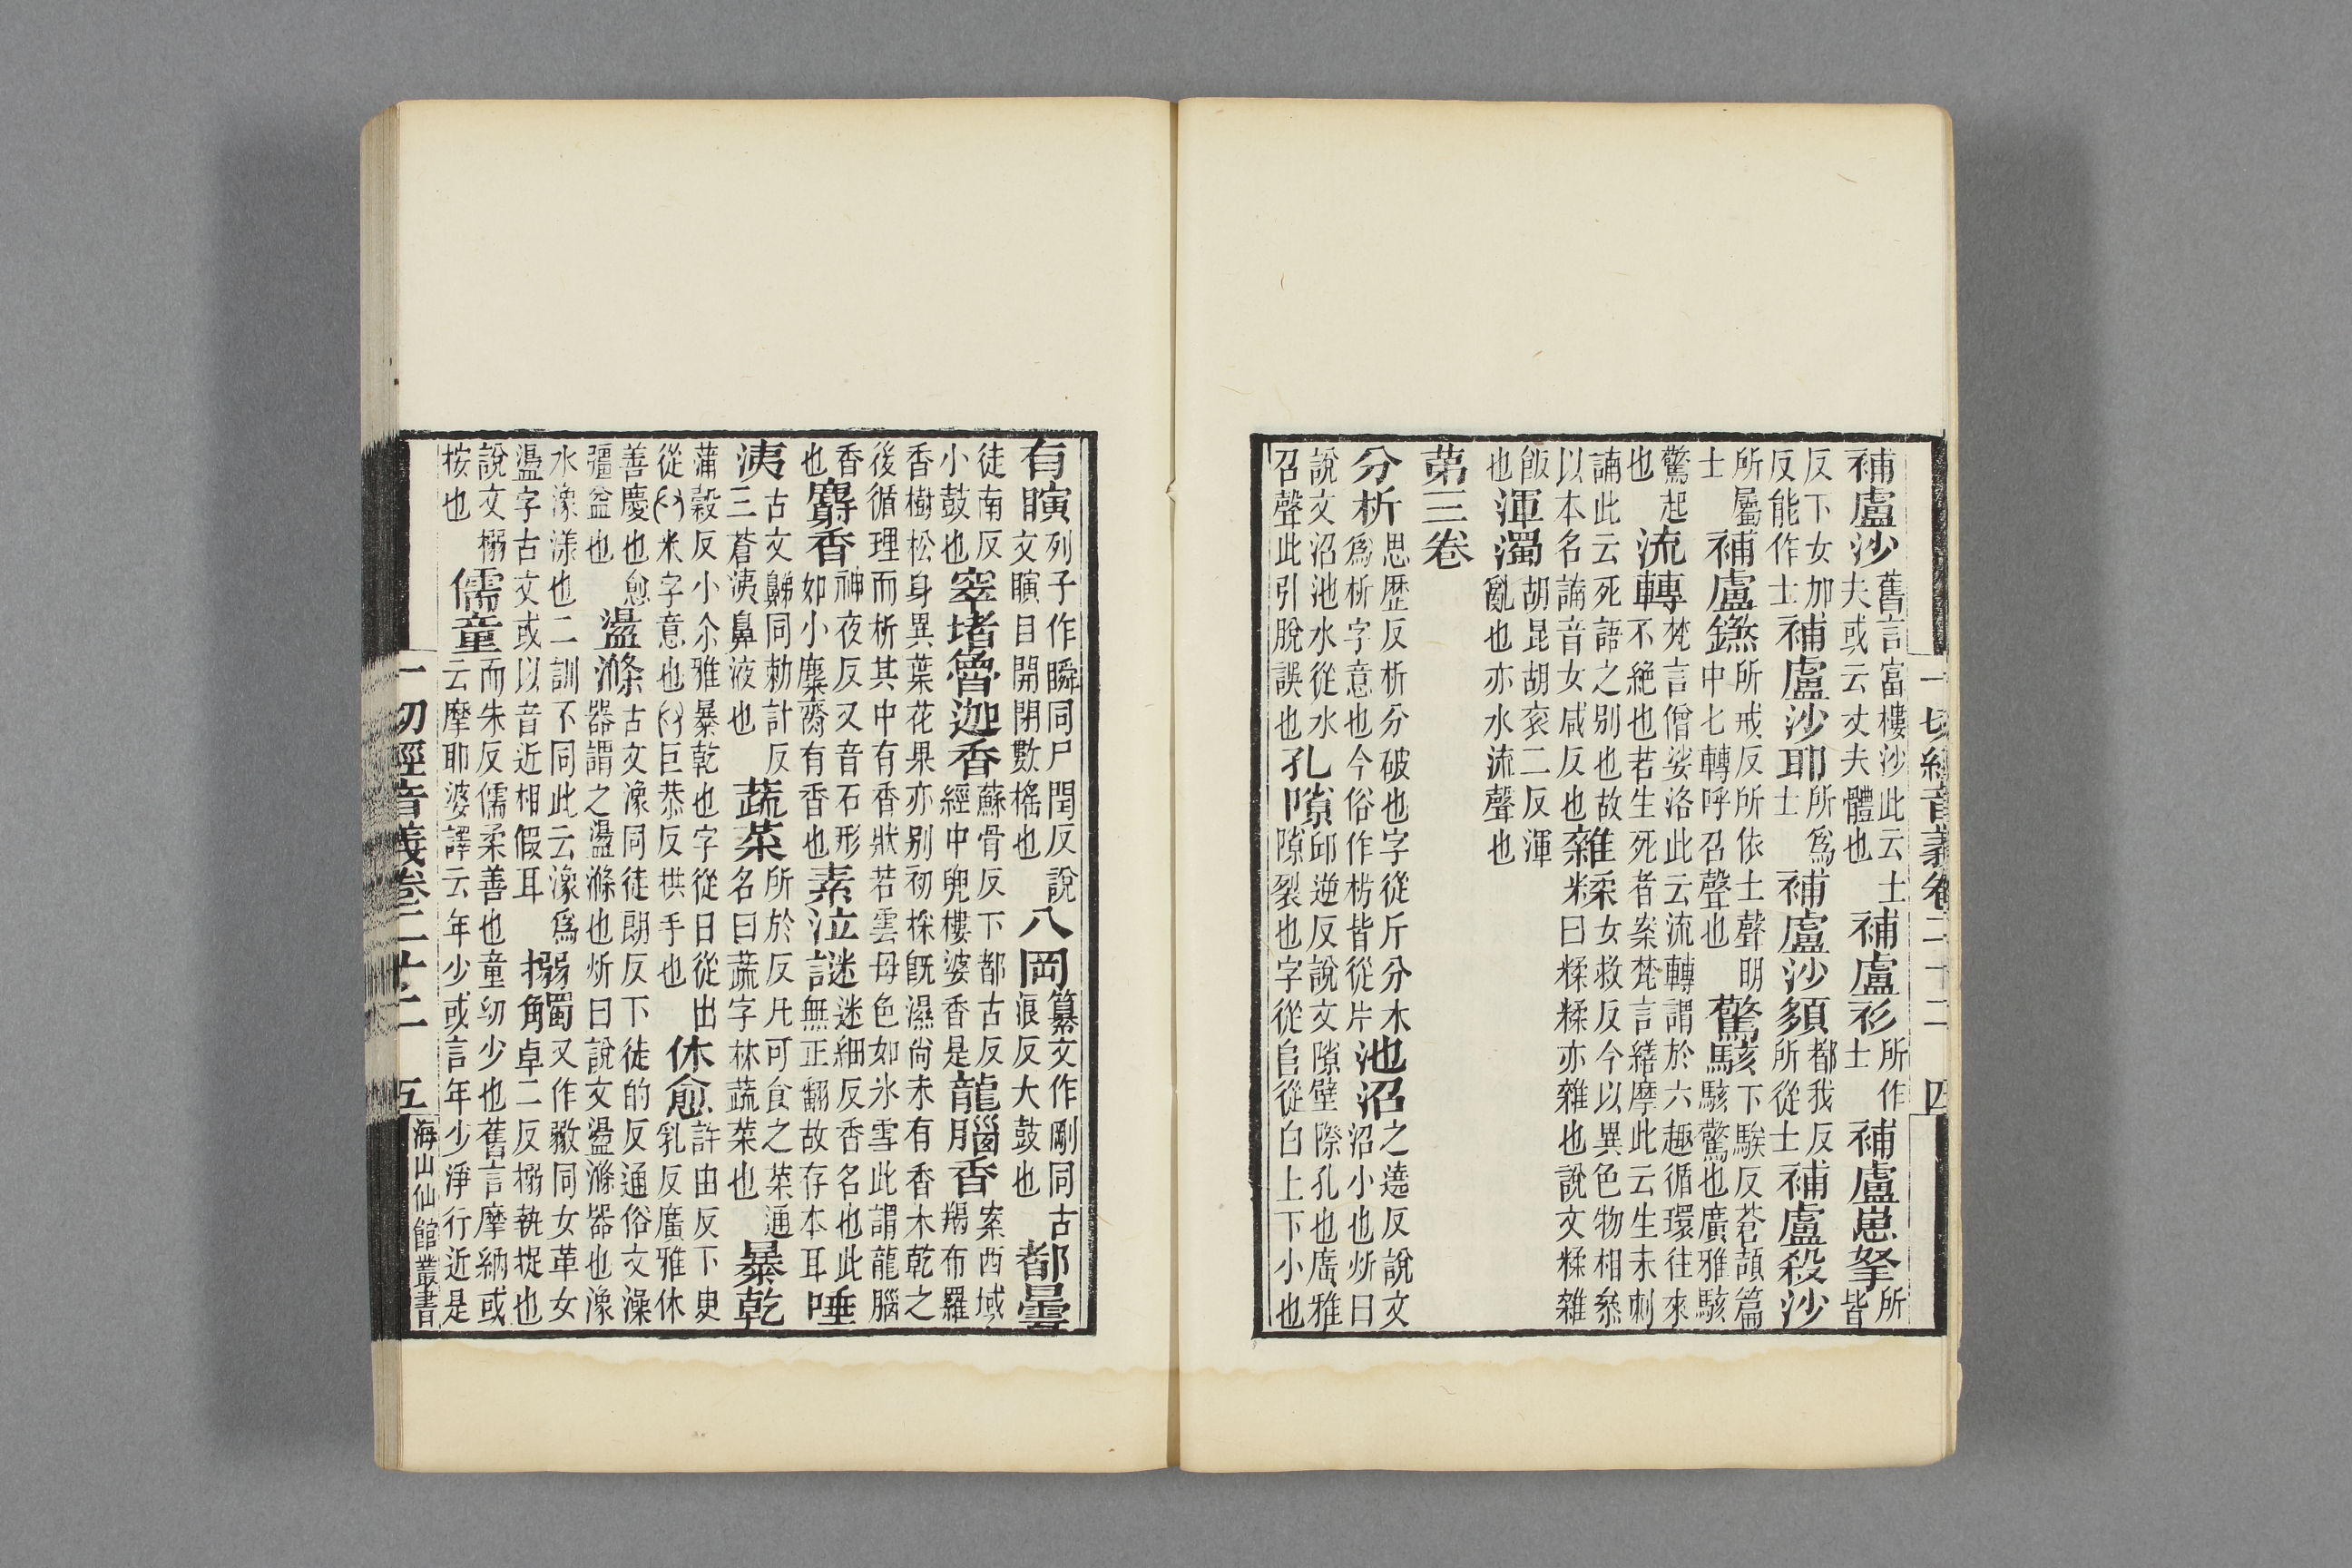 一切經音義卷二十二 四
補盧沙舊言富樓沙此云士夫或云丈夫體也補盧衫所作士補盧崽拏所皆
反下女加反能作士補盧沙耶所爲士補盧沙頞都我反所從士補盧殺沙
所屬士補盧鐆所戒反所依士聲明中七轉呼召聲也驚駭下騃反蒼頡篇駭驚也廣雅駭
驚起也流轉梵言僧娑洛此云流轉謂於六趣循環往來不絕也若生死者案梵言繕摩此云生末刺
諵此云死語之别也故以本名諵音女咸反也雜糅女救反今以異色物相叅曰糅糅亦雜也說文糅雜
飯也渾濁胡昆胡衮二反渾亂也亦水流聲也
苐三卷
分析思歷反析分破也字從斤分木爲析字意也今俗作枿皆從片池沼之遶反說文沼小也炘曰
說文沼池水從水召聲此引脫誤也孔隙邱逆反說文隙壁際孔也廣雅隙裂也字從𨸏從白上下小也
有瞚列子作瞬同尸閏反說文瞚目開閉數榣也八岡纂文作㓻同古浪反大鼓也都曇
徒南反小鼓也窣堵魯迦香蘇骨反下都古反經中兜樓婆香是龍腦香案西域羯布羅
香樹松身異葉花果亦别初採旣濕尚未有香木乾之後循理而析其中有香狀若雲母色如氷雪此謂龍腦
香也麝香神夜反又音石形如小麋臍有香也素泣謎迷細反香名也此無正翻故存本耳唾
洟古文鮷同勑計反三蒼洟鼻液也蔬菜所於反凡可食之菜通名曰蔬字林蔬菜也暴乾
蒲穀反小尒雅暴乾也字從日從出從𠬞米字意也𠬞巨恭反拱手也休愈許由反下臾乳反廣雅休
善慶也愈彊益也盪滌古文潒同徒朗反下徒的反通俗文澡器謂之盪滌也炘曰說文盪滌器也潒
水潒瀁也二訓不同此云潒爲盪字古文或以音近相假耳搦觸又作同女革女角卓二反搦執捉也
說文搦按也儒童而朱反儒柔善也童㓜少也舊言摩納或云摩耶婆譯云年少或言年少淨行近是
一切經音義卷二十二 五 海山仙館叢書